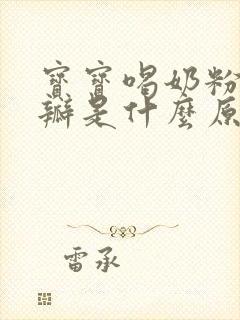 寶寶喝奶粉
瓣是什麼原
雷承